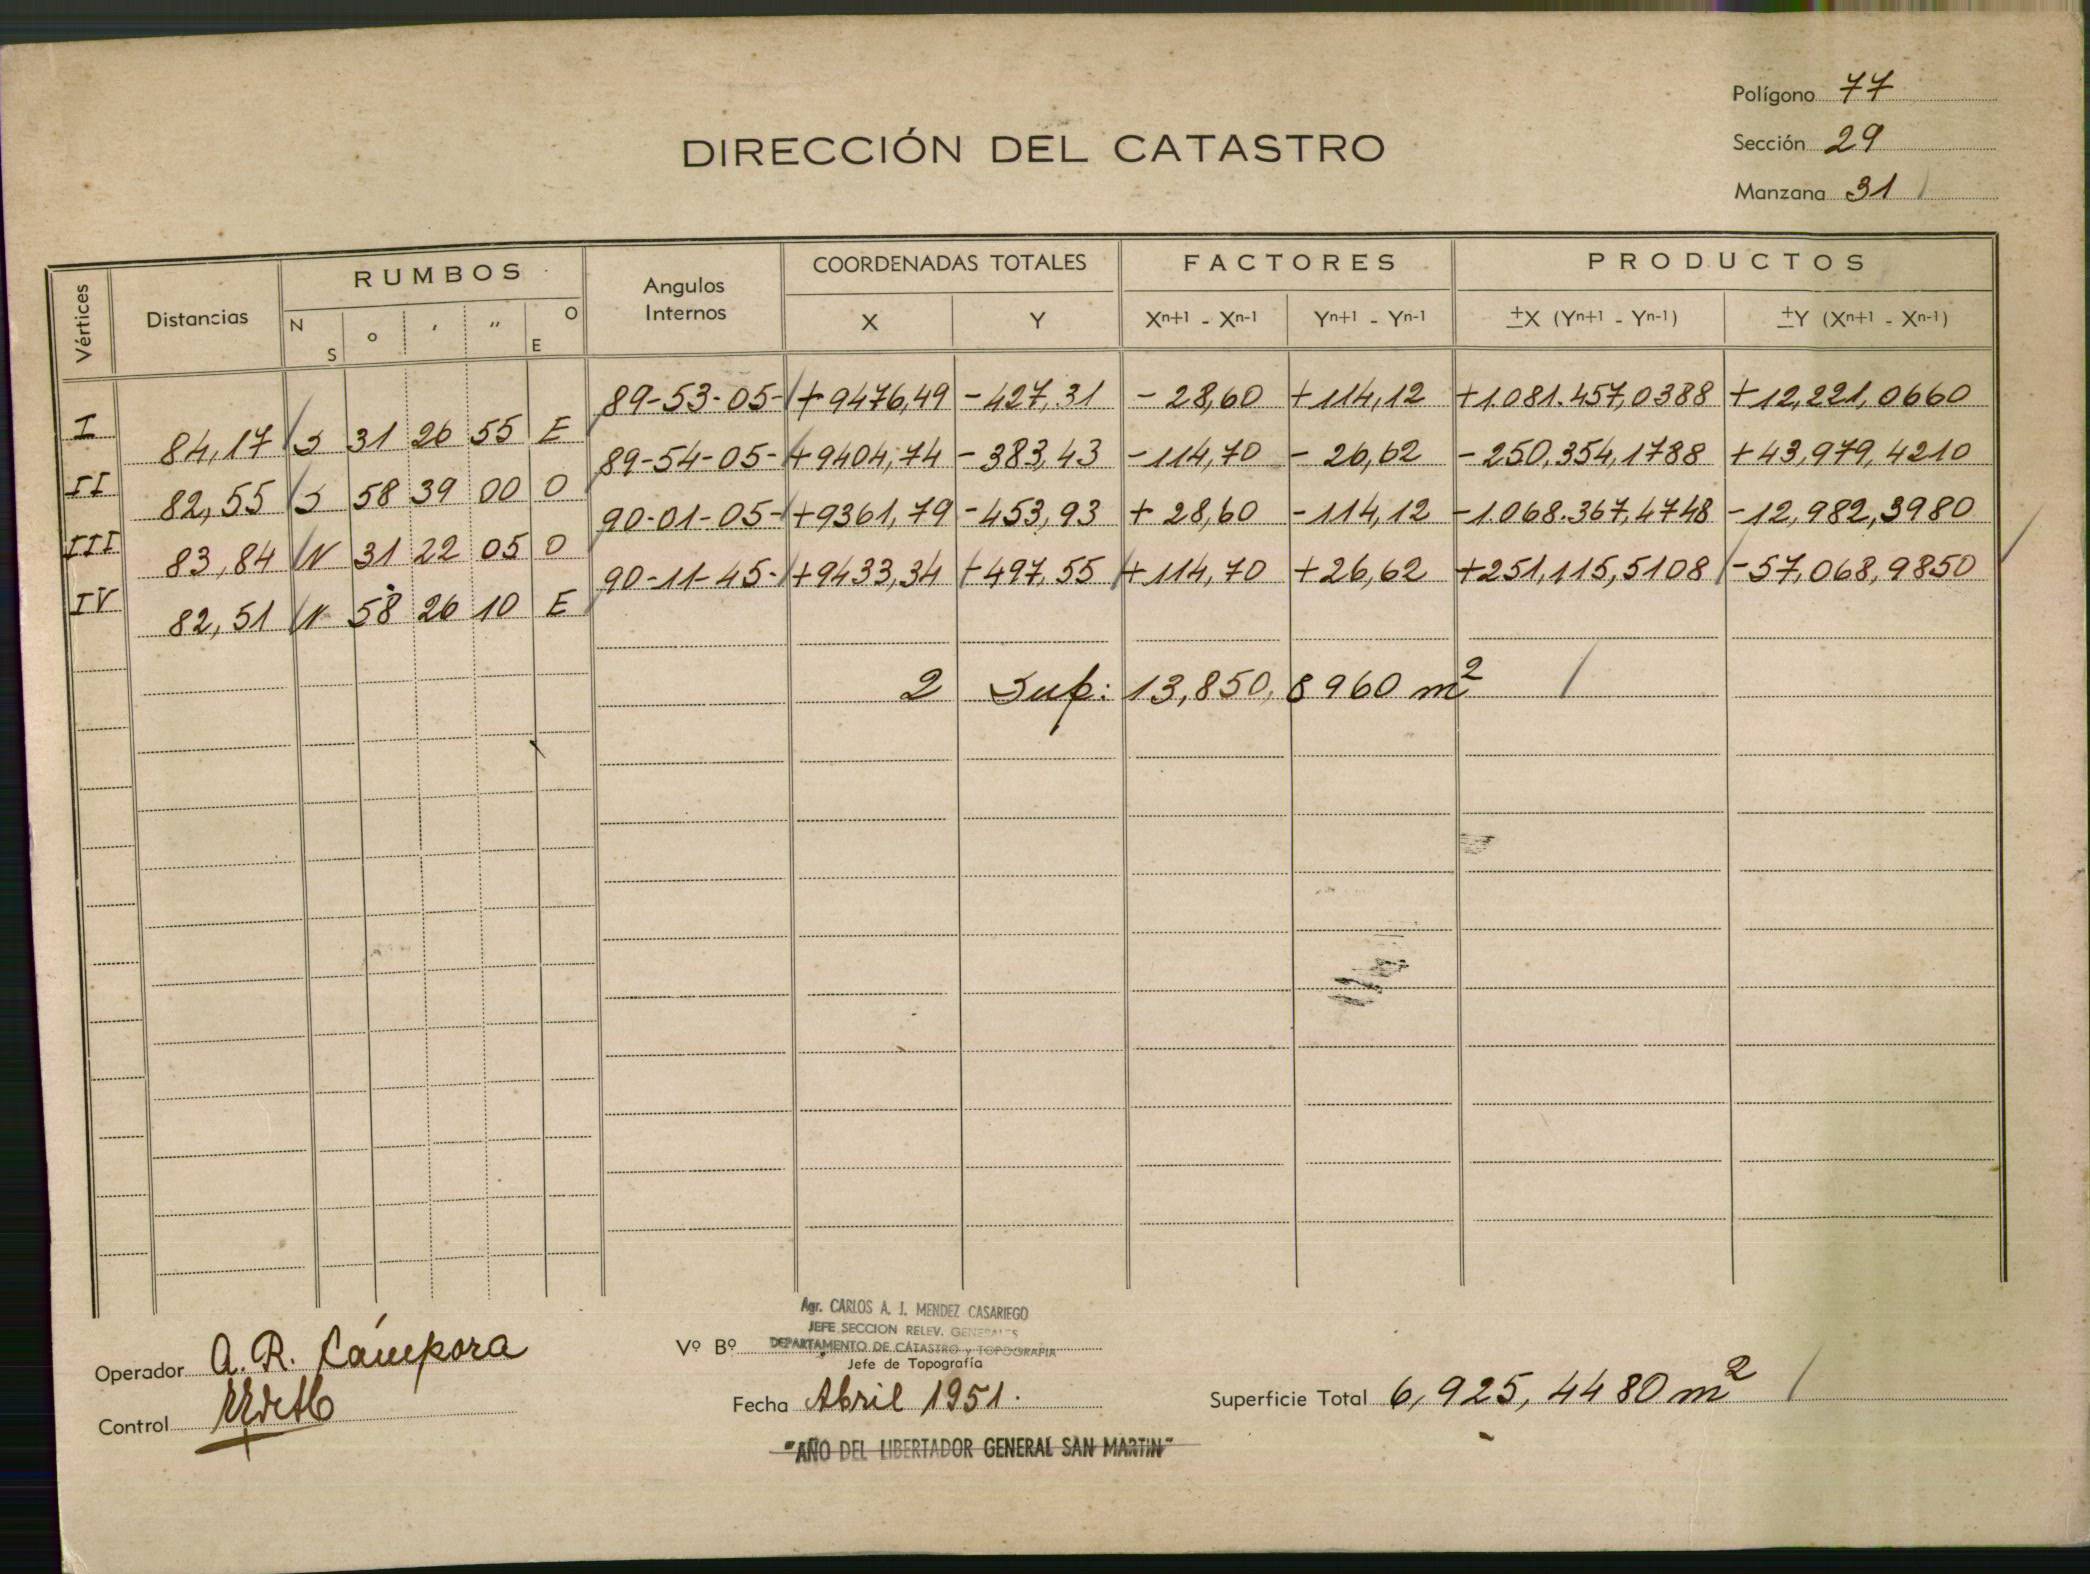 Polígono 77
DIRECCIÓN DEL CATASTRO
Sección 29
Manzana 31
Vértices Distancias RUMBOS Angulos Internos COORDENADAS TOTALES FACTORES PRODUCTOS
N S ° ' " O E X Y Xn+1 - Xn-1 Yn+1 - Yn-1 ±X (Yn+1 - Yn-1) ±Y (Xn+1 - Xn-1)
89-53-05- +9476,49 -427,31 -28,60 +114,12 +1.081.457,0388 +12,221,0660
I 84,17 S 31 26 55 E
89-54-05- +9404,74 -383,43 -114,70 -26,62 -250,354,1788 +43,979,4210
II 82,55 S 58 39 00 O
90-01-05- +9361,79 -453,93 +28,60 -114,12 -1.068.367,4748 -12,982,3980
III 83,84 N 31 22 05 O
90-11-45- +9433,34 -497,55 +114,70 +26,62 +251,115,5108 -57,068,9850
IV 82,51 N 58 26 10 E
2 Sup: 13,850,8960 m²
Agr. CARLOS A. J. MENDEZ CASARIEGO
JEFE SECCION RELEV. GENERALES
Vº Bº DEPARTAMENTO DE CATASTRO y TOPOGRAFIA
Jefe de Topografía
Operador A. R. Cámpora
Control
Fecha Abril 1951.
Superficie Total 6,925,4480 m²
"AÑO DEL LIBERTADOR GENERAL SAN MARTIN"